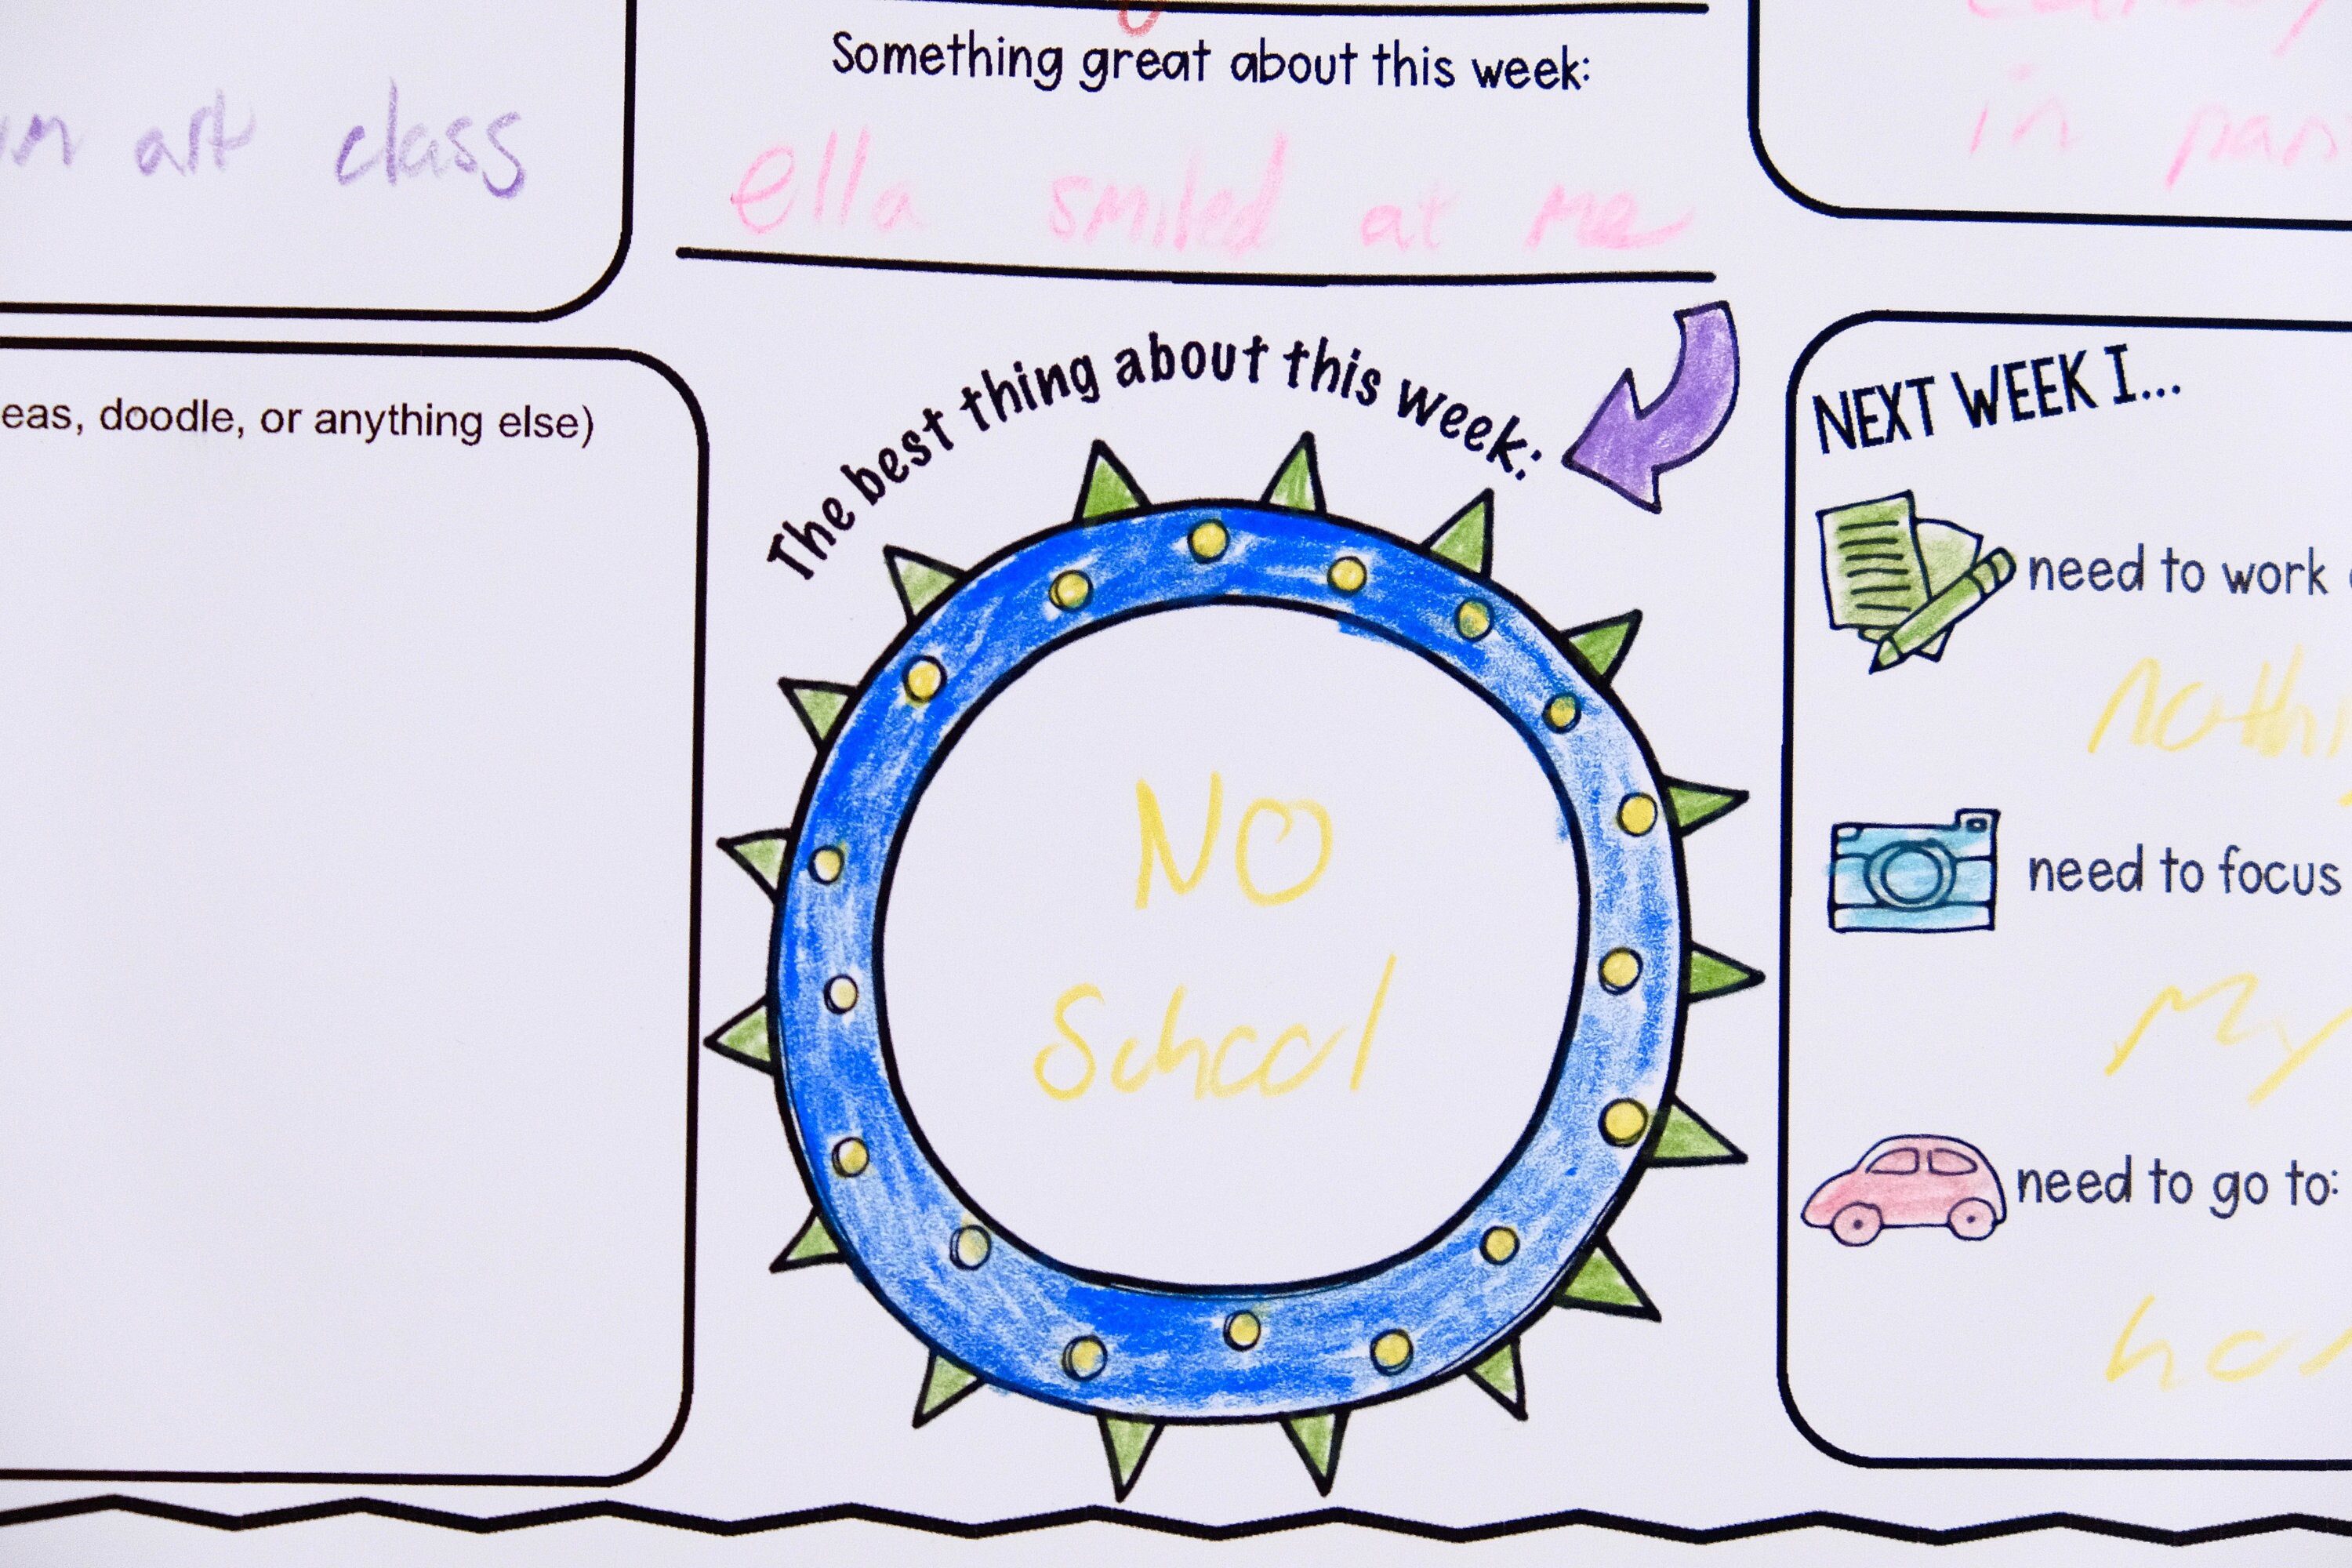 art class
Something great about this week:
ella smiled at me
in
eas, doodle, or anything else)
The best thing about this week:
NO
School
NEXT WEEK I...
need to work
need to focus
My
need to go to: